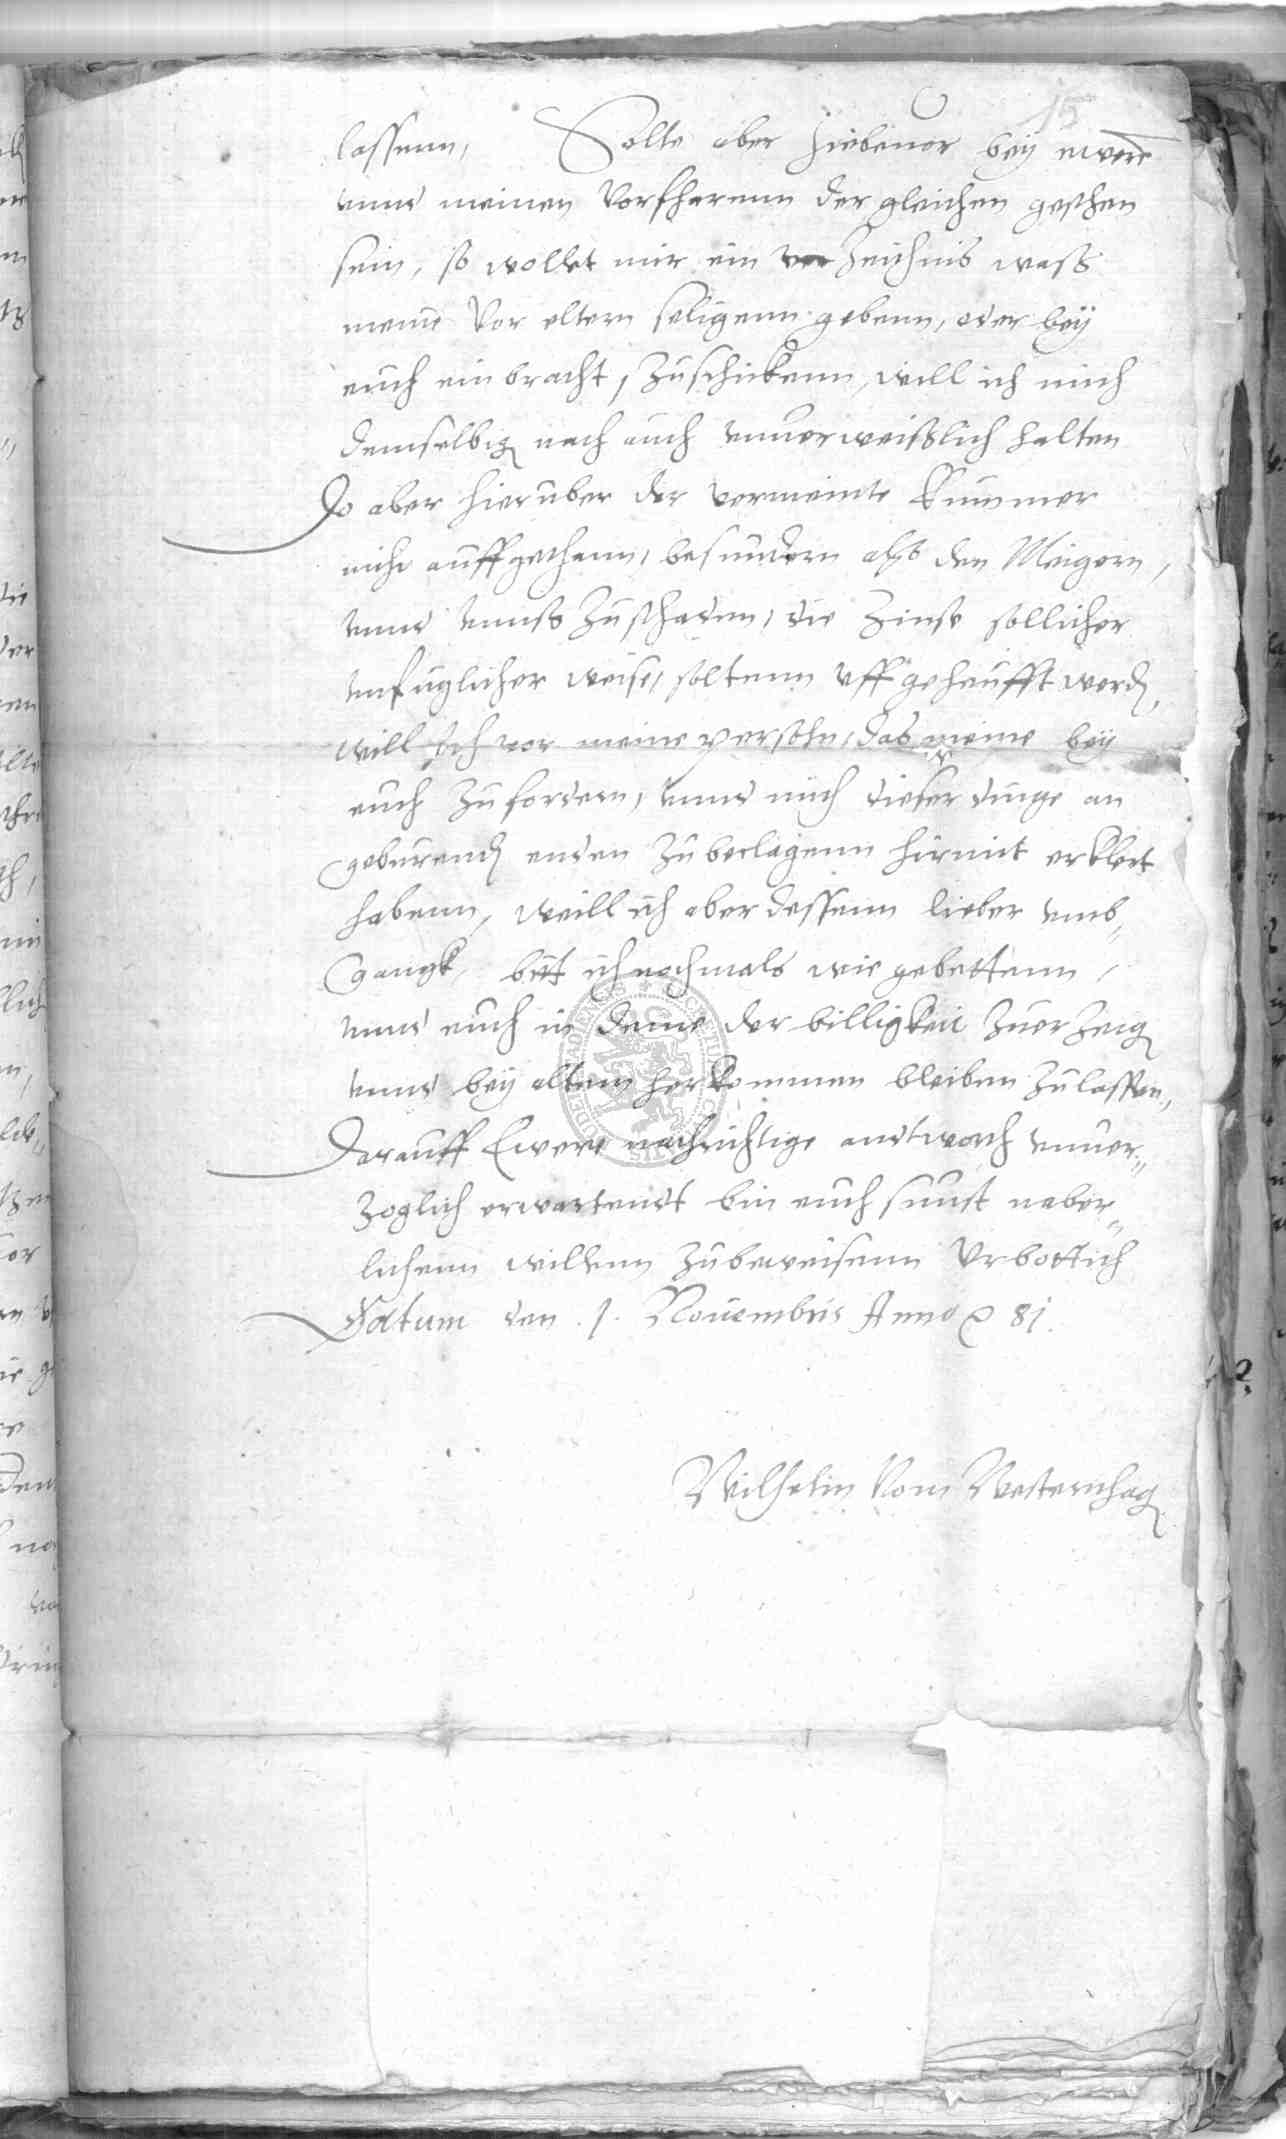 15
lassenn, Solte aber hiebeuor bey ewern
vnnd meinen Vorfharenn der gleichen geschen
sein, so wollet mir ein ver Zeichnis wasß
meine Vor eltern seligenn gebenn, oder bey
euch ein bracht, Zuschickenn, will ich mich
demselbig nach auch vnuerweißlich halten
Do aber hieruber der vermeinte Kummer
nicht auffgethann, besundern alß den Meigern,
vnnd vnnß Zuschaden, die Zinse sollicher
vnfuglicher weise, soltenn vff gehaufft werd,
will Ich vor meine persohn, das meine bey
euch Zu fordern, vnnd mich dieser dinge an
geburend enden Zubeclagenn hirmit erklert
habenn, weill ich aber dessenn lieber vmb„
gangk, bitt ich nochmals wie gebettenn,
vnnd euch in deme der billigkeit Zuer Zeig
vnnd bey altem herkommen bleiben Zulassen,
Darauff Ewere nachrichtige andtwort vnuer„
Zoglich erwartendt bin euch sunst naber„
lichenn willenn Zubeweisenn Vrbottich
Datum den 1. Nouembris Anno 81.
Wilhelm Vom Westernhag